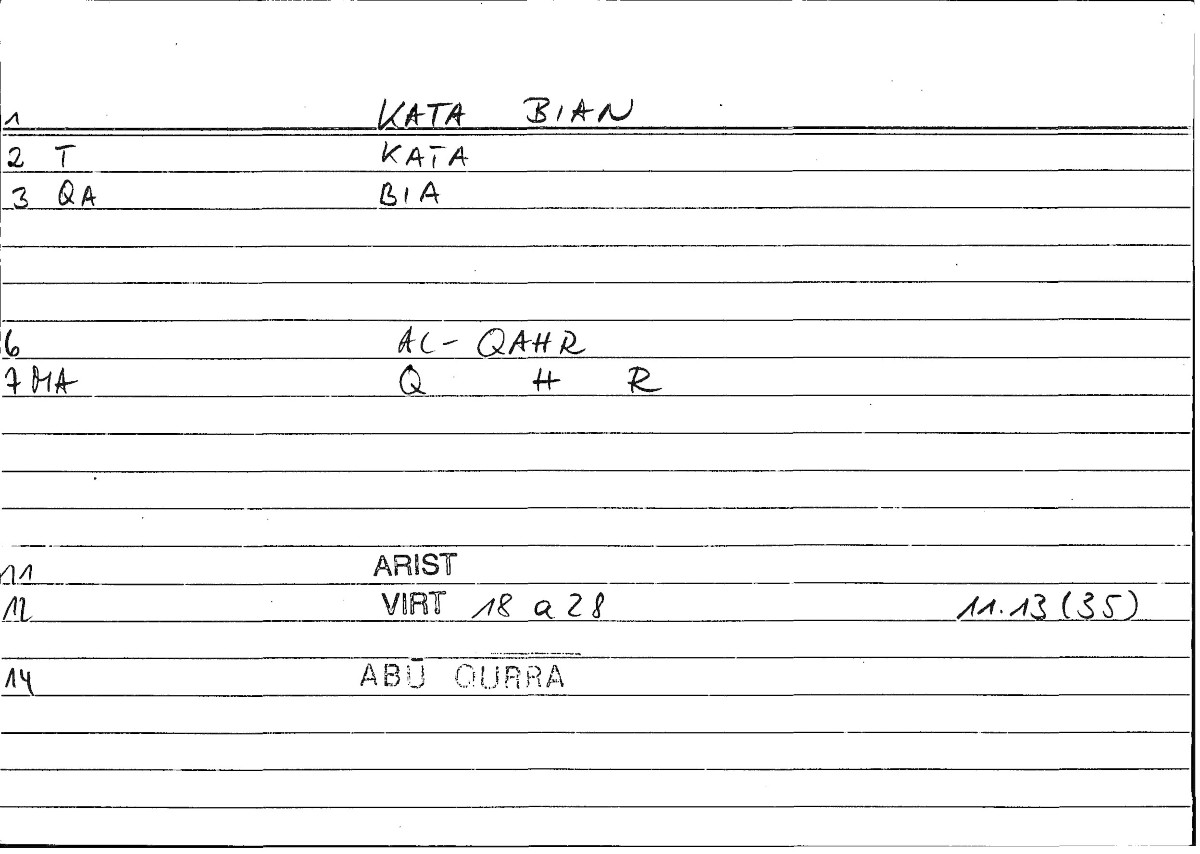 1 KATA BIAN
2 T KATA
3 QA BIA
6 AL-QAHR
7 MA Q H R
11 ARIST
12 VIRT 18 a 28 11.13 (35)
14 ABŪ QURRA